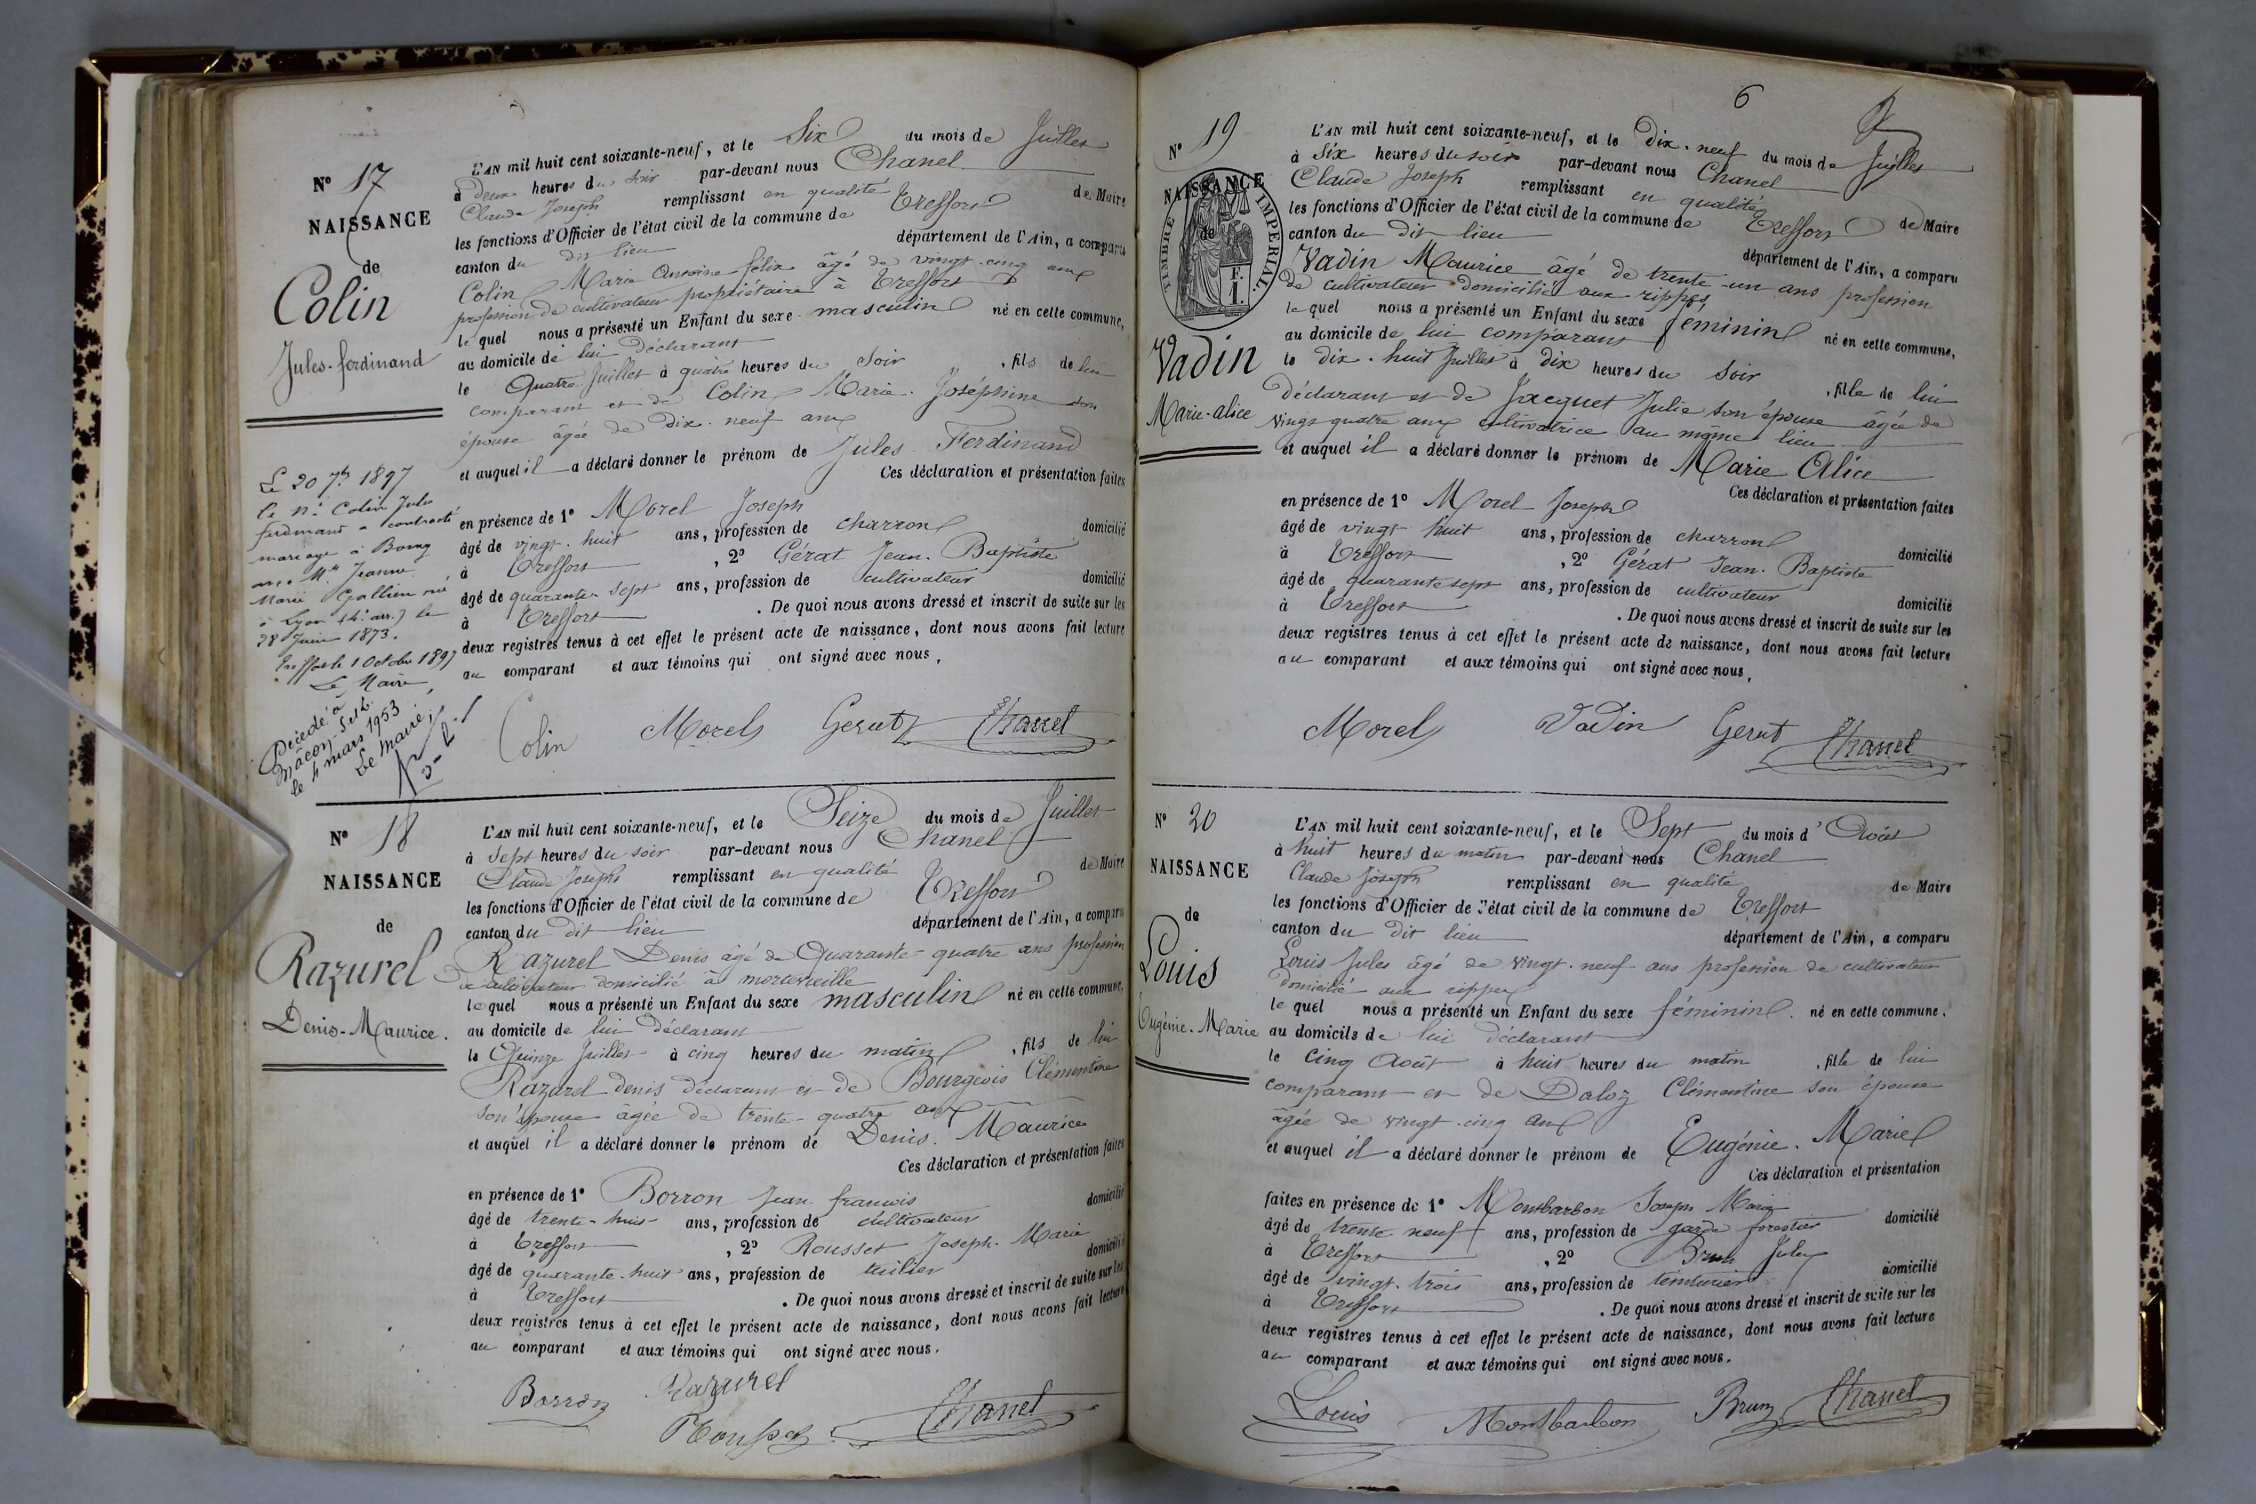 N° 17
NAISSANCE
de
Colin
Jules-ferdinand
Le 20 7bre 1897
le né Colin Jules
ferdinand a contracté
mariage à Bourg
avec Mlle Jeanne
Marie Gallien née
à Lyon (4e arr.) le
28 Juin 1873.
Treffort le 1 Octobre 1897
Le Maire,
Décédé à
Mâcon S et L
le 4 mars 1953
Le Maire,
L'AN mil huit cent soixante-neuf, et le Six du mois de Juillet
à deux heures du soir par-devant nous Chanel
Claude Joseph remplissant en qualité de Maire
les fonctions d'Officier de l'état civil de la commune de Treffort
canton du dit lieu département de l'Ain, a comparu
Colin Marie Antoine félix âgé de vingt-cinq ans
profession de cultivateur propriétaire à Treffort
le quel nous a présenté un Enfant du sexe masculin né en cette commune,
au domicile de lui déclarant
le Quatre Juillet à quatre heures du Soir, fils de lui
comparant et de Colin Marie Joséphine son
épouse âgée de Dix-neuf ans
et auquel il a déclaré donner le prénom de Jules Ferdinand
Ces déclaration et présentation faites
en présence de 1° Morel Joseph
âgé de vingt-huit ans, profession de charron domicilié
à Treffort, 2° Gérat Jean-Baptiste
âgé de quarante-sept ans, profession de cultivateur domicilié
à Treffort. De quoi nous avons dressé et inscrit de suite sur les
deux registres tenus à cet effet le présent acte de naissance, dont nous avons fait lecture
au comparant et aux témoins qui ont signé avec nous,
Colin Morel Gerat Chanel
N° 18
NAISSANCE
de
Razurel
Denis-Maurice.
L'AN mil huit cent soixante-neuf, et le Seize du mois de Juillet
à Sept heures du soir par-devant nous Chanel
Claude Joseph remplissant en qualité de Maire
les fonctions d'Officier de l'état civil de la commune de Treffort
canton du dit lieu département de l'Ain, a comparu
Razurel Denis âgé de Quarante-quatre ans profession
de cultivateur domicilié à montorieille
le quel nous a présenté un Enfant du sexe masculin né en cette commune,
au domicile de lui déclarant
le Quinze Juillet à cinq heures du matin, fils de lui
Razurel denis déclarant et de Bourgeois Clémentine
son épouse âgée de trente-quatre ans
et auquel il a déclaré donner le prénom de Denis-Maurice
Ces déclaration et présentation faites
en présence de 1° Borron Jean françois domicilié
âgé de trente-huit ans, profession de cultivateur
à Treffort, 2° Rousset Joseph-Marie domicilié
âgé de quarante-huit ans, profession de tuilier
à Treffort. De quoi nous avons dressé et inscrit de suite sur les
deux registres tenus à cet effet le présent acte de naissance, dont nous avons fait lecture
au comparant et aux témoins qui ont signé avec nous.
Borron Razurel
Rousset Chanel
6
N° 19
NAISSANCE
de
TIMBRE IMPERIAL
F.
I.
Vadin
Marie-alice
L'AN mil huit cent soixante-neuf, et le Dix-neuf du mois de Juillet
à Six heures du soir par-devant nous Chanel
Claude Joseph remplissant en qualité de Maire
les fonctions d'Officier de l'état civil de la commune de Treffort
canton du dit lieu département de l'Ain, a comparu
Vadin Maurice âgé de trente-un ans profession
de cultivateur domicilié aux rippes,
le quel nous a présenté un Enfant du sexe féminin né en cette commune,
au domicile de lui comparant
le dix-huit Juillet à dix heures du Soir, fille de lui
déclarant et de Jacquet Julie son épouse âgée de
vingt quatre ans cultivatrice au même lieu
et auquel il a déclaré donner le prénom de Marie Alice
Ces déclaration et présentation faites
en présence de 1° Morel Joseph
âgé de vingt-huit ans, profession de charron domicilié
à Treffort, 2° Gérat Jean-Baptiste
âgé de quarante sept ans, profession de cultivateur domicilié
à Treffort. De quoi nous avons dressé et inscrit de suite sur les
deux registres tenus à cet effet le présent acte de naissance, dont nous avons fait lecture
au comparant et aux témoins qui ont signé avec nous,
Morel Vadin Gerat Chanel
N° 20
NAISSANCE
de
Louis
Eugénie-Marie
L'AN mil huit cent soixante-neuf, et le Sept du mois d'Août
à huit heures du matin par-devant nous Chanel
Claude Joseph remplissant en qualité de Maire
les fonctions d'Officier de l'état civil de la commune de Treffort
canton du dit lieu département de l'Ain, a comparu
Louis Jules âgé de vingt-neuf ans profession de cultivateur
domicilié aux rippes
le quel nous a présenté un Enfant du sexe féminin né en cette commune,
au domicile de lui déclarant
le cinq Août à huit heures du matin, fille de lui
comparant et de Daloz Clémentine son épouse
âgée de vingt-cinq ans
et auquel il a déclaré donner le prénom de Eugénie-Marie
Ces déclaration et présentation
faites en présence de 1° Montbarbon Joseph Marie
âgé de trente neuf ans, profession de garde forestier domicilié
à Treffort, 2° Brun Jules
âgé de vingt-trois ans, profession de teinturier domicilié
à Treffort. De quoi nous avons dressé et inscrit de suite sur les
deux registres tenus à cet effet le présent acte de naissance, dont nous avons fait lecture
au comparant et aux témoins qui ont signé avec nous.
Louis Montbarbon Brun Chanel